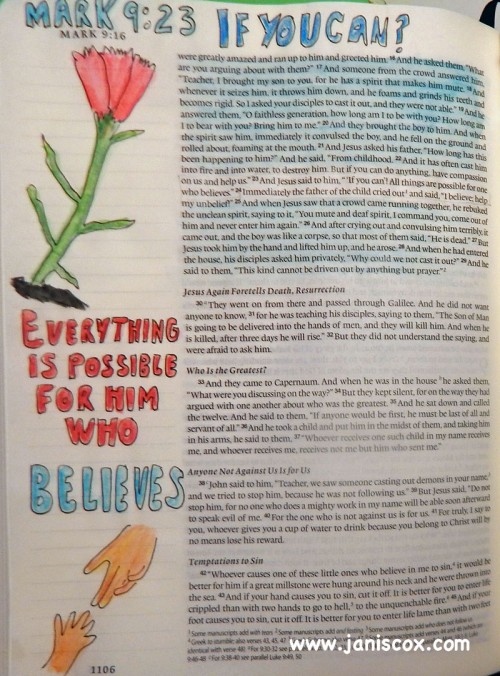 MARK 9:23 IF YOU CAN?
MARK 9:16
EVERYTHING
IS POSSIBLE
FOR HIM
WHO
BELIEVES
1106
were greatly amazed and ran up to him and greeted him. 16 And he asked them, "What
are you arguing about with them?" 17 And someone from the crowd answered him,
"Teacher, I brought my son to you, for he has a spirit that makes him mute. 18 And
whenever it seizes him, it throws him down, and he foams and grinds his teeth and
becomes rigid. So I asked your disciples to cast it out, and they were not able." 19 And he
answered them, "O faithless generation, how long am I to be with you? How long am
I to bear with you? Bring him to me." 20 And they brought the boy to him. And when
the spirit saw him, immediately it convulsed the boy, and he fell on the ground and
rolled about, foaming at the mouth. 21 And Jesus asked his father, "How long has this
been happening to him?" And he said, "From childhood. 22 And it has often cast him
into fire and into water, to destroy him. But if you can do anything, have compassion
on us and help us." 23 And Jesus said to him, "'If you can'! All things are possible for one
who believes." 24 Immediately the father of the child cried out and said, "I believe; help
my unbelief!" 25 And when Jesus saw that a crowd came running together, he rebuked
the unclean spirit, saying to it, "You mute and deaf spirit, I command you, come out of
him and never enter him again." 26 And after crying out and convulsing him terribly, it
came out, and the boy was like a corpse, so that most of them said, "He is dead." 27 But
Jesus took him by the hand and lifted him up, and he arose. 28 And when he had entered
the house, his disciples asked him privately, "Why could we not cast it out?" 29 And he
said to them, "This kind cannot be driven out by anything but prayer."
Jesus Again Foretells Death, Resurrection
30 They went on from there and passed through Galilee. And he did not want
anyone to know, 31 for he was teaching his disciples, saying to them, "The Son of Man
is going to be delivered into the hands of men, and they will kill him. And when he
is killed, after three days he will rise." 32 But they did not understand the saying, and
were afraid to ask him.
Who Is the Greatest?
33 And they came to Capernaum. And when he was in the house he asked them,
"What were you discussing on the way?" 34 But they kept silent, for on the way they had
argued with one another about who was the greatest. 35 And he sat down and called
the twelve. And he said to them, "If anyone would be first, he must be last of all and
servant of all." 36 And he took a child and put him in the midst of them, and taking him
in his arms, he said to them, 37 "Whoever receives one such child in my name receives
me, and whoever receives me, receives not me but him who sent me."
Anyone Not Against Us Is for Us
38 John said to him, "Teacher, we saw someone casting out demons in your name,
and we tried to stop him, because he was not following us." 39 But Jesus said, "Do not
stop him, for no one who does a mighty work in my name will be able soon afterward
to speak evil of me. 40 For the one who is not against us is for us. 41 For truly, I say to
you, whoever gives you a cup of water to drink because you belong to Christ will by
no means lose his reward.
Temptations to Sin
42 "Whoever causes one of these little ones who believe in me to sin, it would be
better for him if a great millstone were hung around his neck and he were thrown into
the sea. 43 And if your hand causes you to sin, cut it off. It is better for you to enter life
crippled than with two hands to go to hell, to the unquenchable fire. 45 And if your
foot causes you to sin, cut it off. It is better for you to enter life lame than with two feet
www.janiscox.com